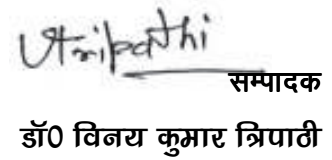 Vtripathi
सम्पादक
डॉ0 विनय कुमार त्रिपाठी